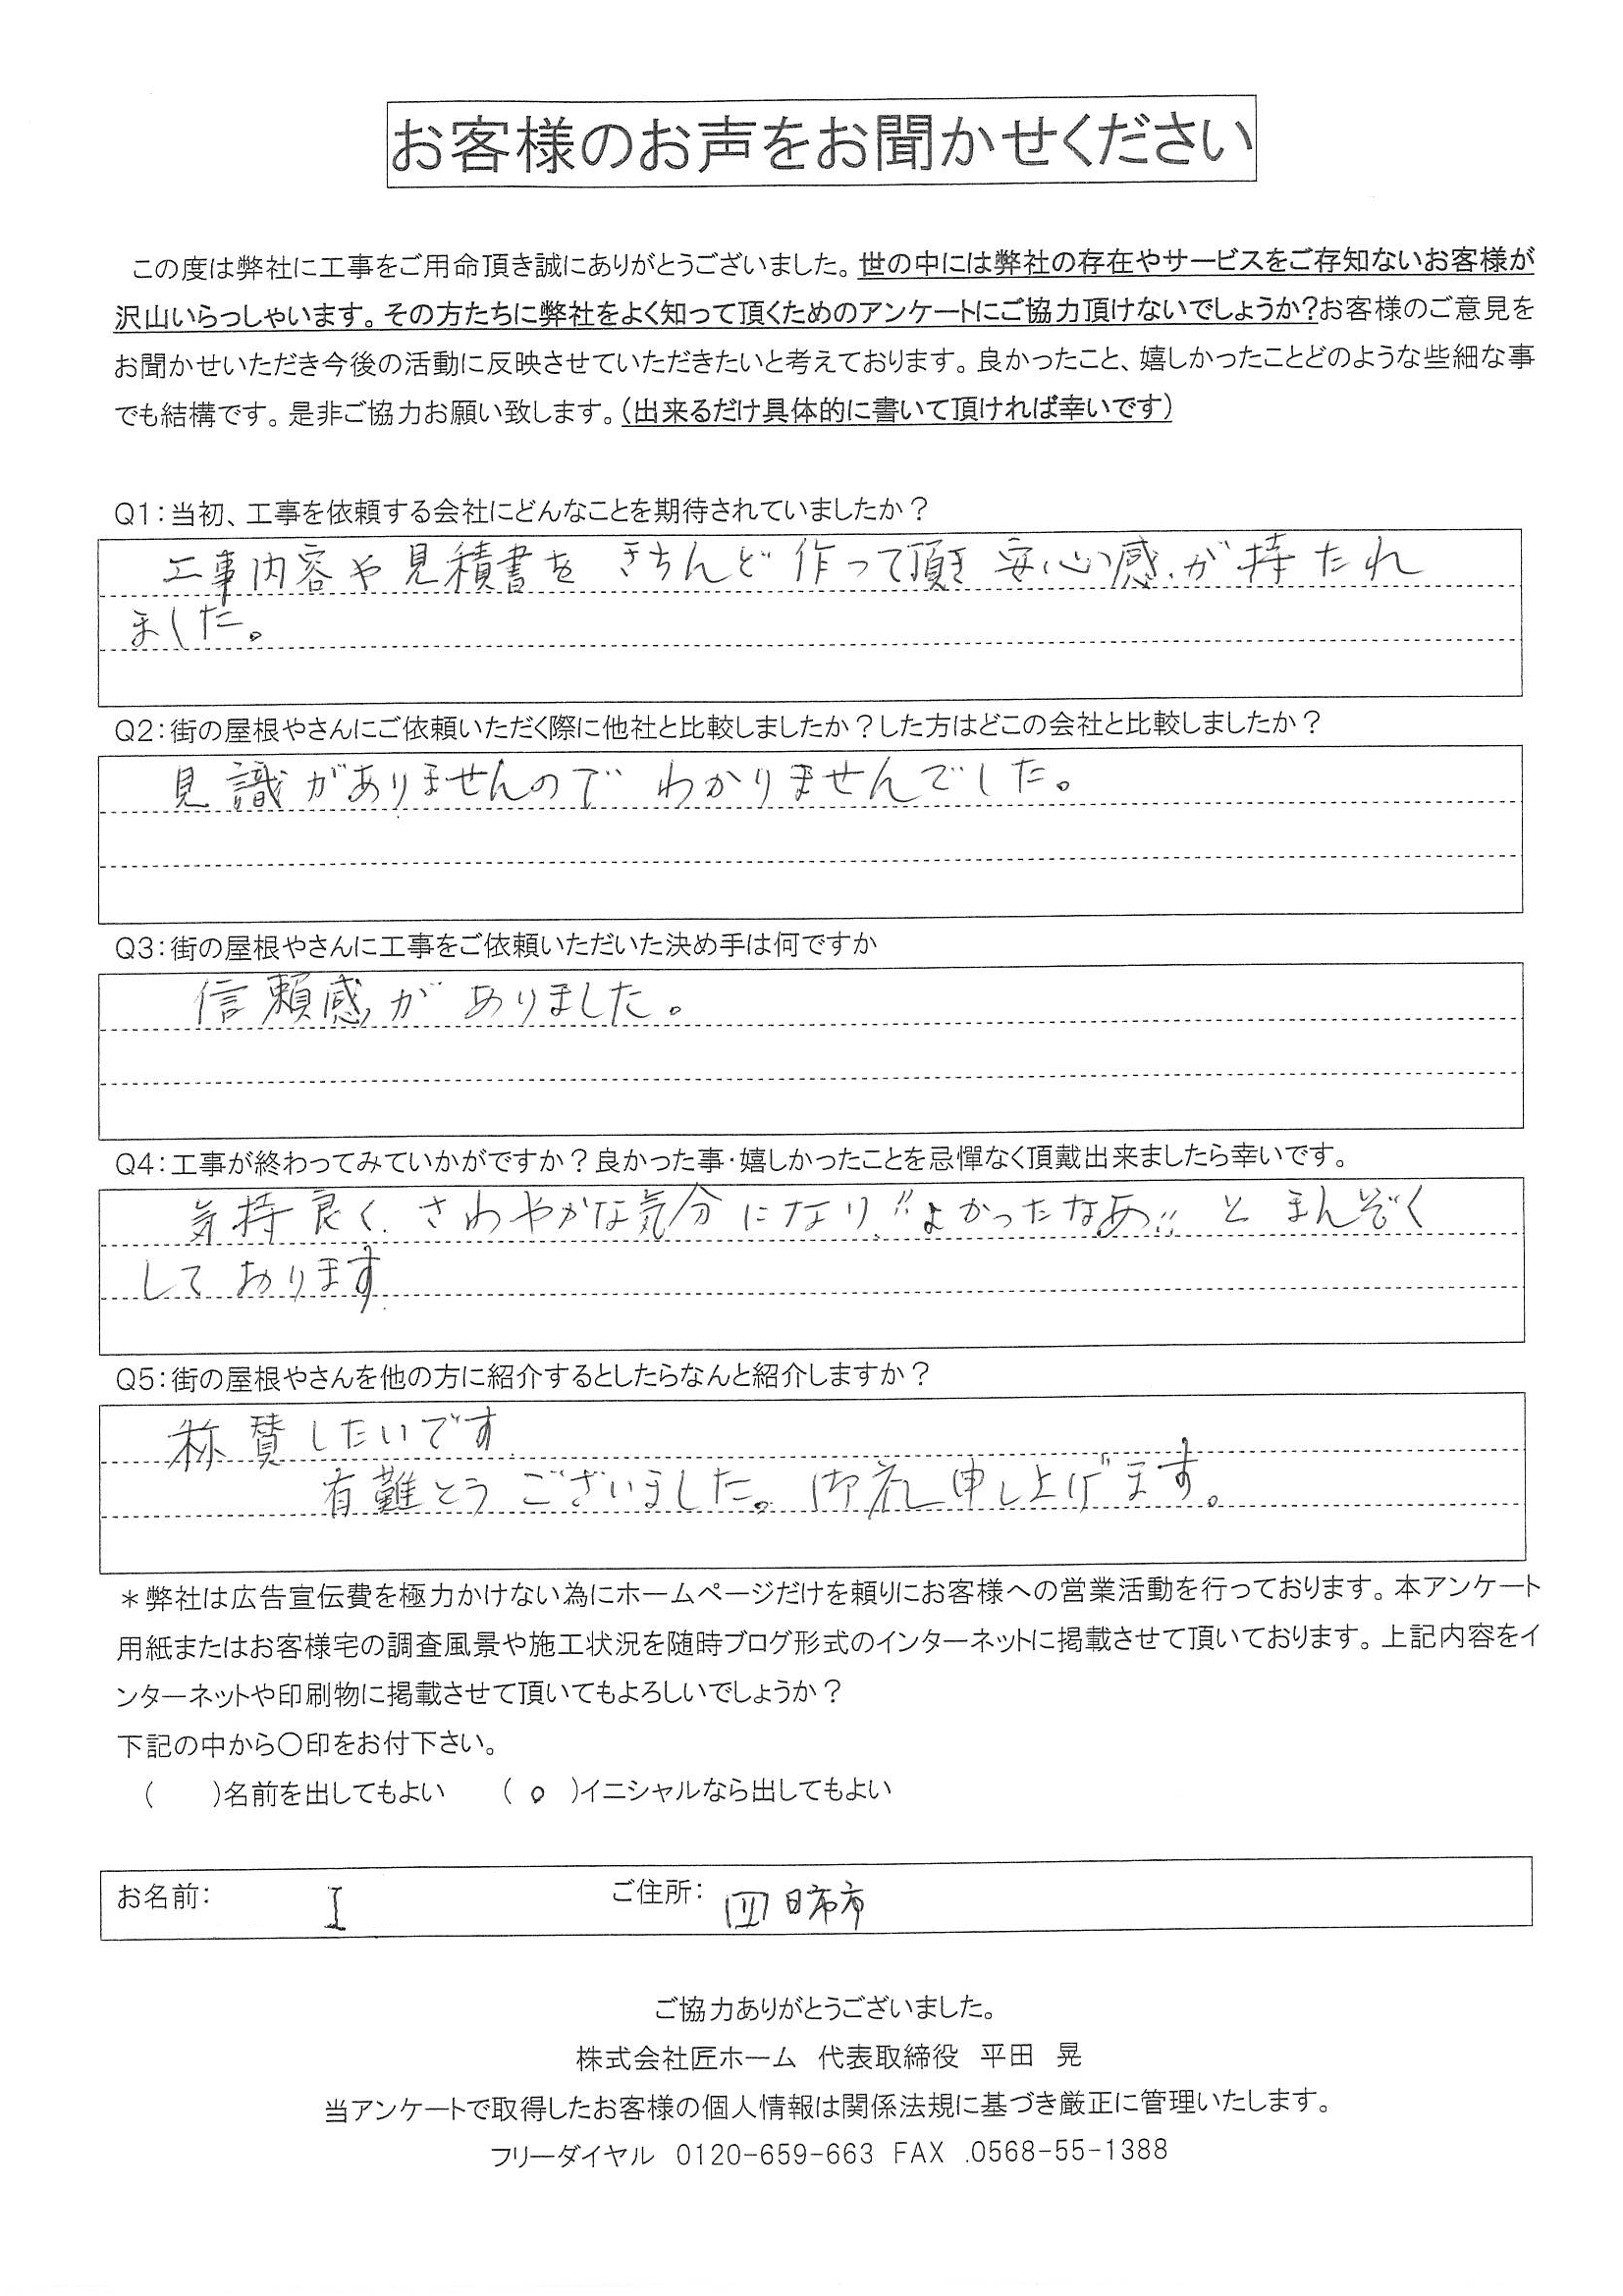 お客様のお声をお聞かせください
この度は弊社に工事をご用命頂き誠にありがとうございました。世の中には弊社の存在やサービスをご存知ないお客様が
沢山いらっしゃいます。その方たちに弊社をよく知って頂くためのアンケートにご協力頂けないでしょうか?お客様のご意見を
お聞かせいただき今後の活動に反映させていただきたいと考えております。良かったこと、嬉しかったことどのような些細な事
でも結構です。是非ご協力お願い致します。(出来るだけ具体的に書いて頂ければ幸いです)
Q1:当初、工事を依頼する会社にどんなことを期待されていましたか?
工事内容や見積書を きちんと 作って頂き 安心感が持たれ
ました。
Q2:街の屋根やさんにご依頼いただく際に他社と比較しましたか?した方はどこの会社と比較しましたか?
見識がありませんので わかりませんでした。
Q3:街の屋根やさんに工事をご依頼いただいた決め手は何ですか
信頼感が ありました。
Q4:工事が終わってみていかがですか?良かった事・嬉しかったことを忌憚なく頂戴出来ましたら幸いです。
気持良く、さわやかな気分になり〝よかったなあ〟と まんぞく
して おります
Q5:街の屋根やさんを他の方に紹介するとしたらなんと紹介しますか?
称賛したいです
有難とう ございました。御礼申し上げます。
*弊社は広告宣伝費を極力かけない為にホームページだけを頼りにお客様への営業活動を行っております。本アンケート
用紙またはお客様宅の調査風景や施工状況を随時ブログ形式のインターネットに掲載させて頂いております。上記内容をイ
ンターネットや印刷物に掲載させて頂いてもよろしいでしょうか?
下記の中から〇印をお付下さい。
( )名前を出してもよい (○)イニシャルなら出してもよい
お名前: I ご住所: 四日市市
ご協力ありがとうございました。
株式会社匠ホーム 代表取締役 平田 晃
当アンケートで取得したお客様の個人情報は関係法規に基づき厳正に管理いたします。
フリーダイヤル 0120-659-663 FAX .0568-55-1388